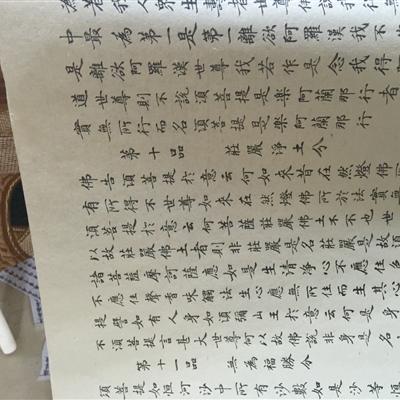 中最為第一是第一離欲阿羅漢我不
是離欲阿羅漢世尊我若作是念我得
道世尊則不說須菩提是樂阿蘭那行者
實無所行而名須菩提是樂阿蘭那行
第十品 莊嚴淨土分
佛告須菩提於意云何如來昔在然燈佛
有所得不世尊如來在然燈佛所於法實無
須菩提於意云何菩薩莊嚴佛土不不也世
以故莊嚴佛土者則非莊嚴是名莊嚴是故須
諸菩薩摩訶薩應如是生清淨心不應住色
不應住聲香味觸法生心應無所住而生其心
提譬如有人身如須彌山王於意云何是身
不須菩提言甚大世尊何以故佛說非身是名
第十一品 無為福勝分
須菩提如恒河沙中所有沙數如是沙等恒